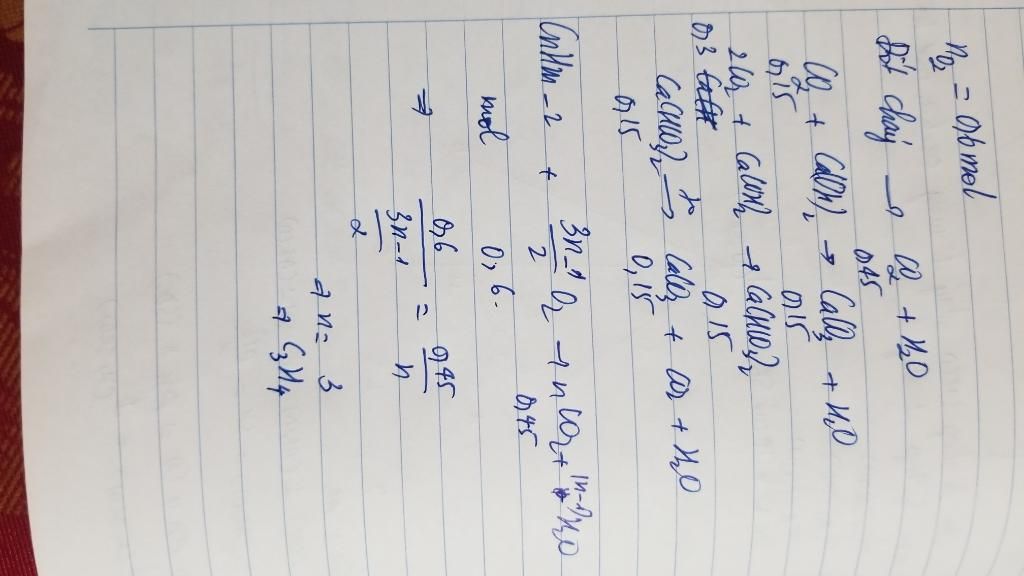 n_O₂ = 0,6 mol
Đốt cháy → CO₂ + H₂O
0,45
CO₂ + Ca(OH)₂ → CaCO₃ + H₂O
0,15 0,15
2CO₂ + Ca(OH)₂ → Ca(HCO₃)₂
0,3 0,15
Ca(HCO₃)₂ → CaCO₃ + CO₂ + H₂O
0,15 0,15
CnHm-2 + (3n-1)/2 O₂ → nCO₂ + (n-1)H₂O
mol 0,6. 0,45
⇒ 0,6/((3n-1)/2) = 0,45/n
⇒ n = 3
⇒ C₃H₄